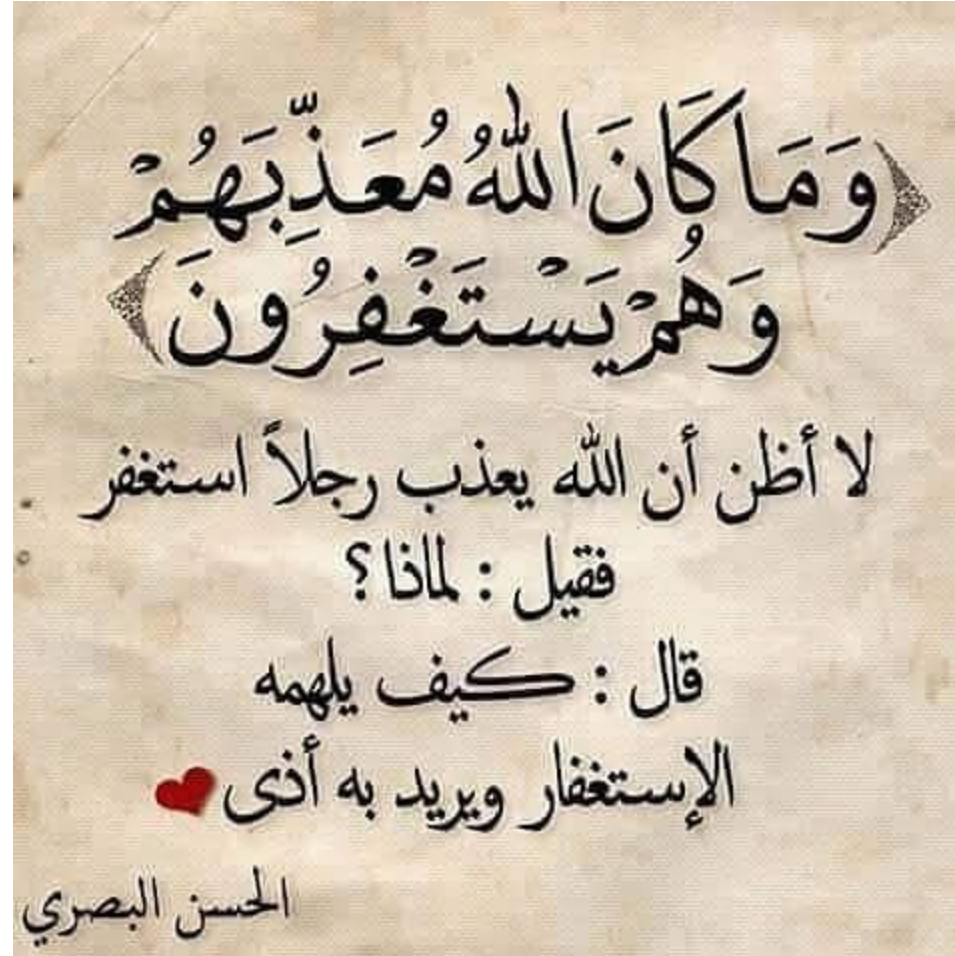 ﴿وَمَا كَانَ اللهُ مُعَذِّبَهُمْ
وَهُمْ يَسْتَغْفِرُونَ﴾
لا أظن أن الله يعذب رجلاً استغفر
فقيل : لماذا ؟
قال : كيف يلهمه
الإستغفار ويريد به أذى❤
الحسن البصري